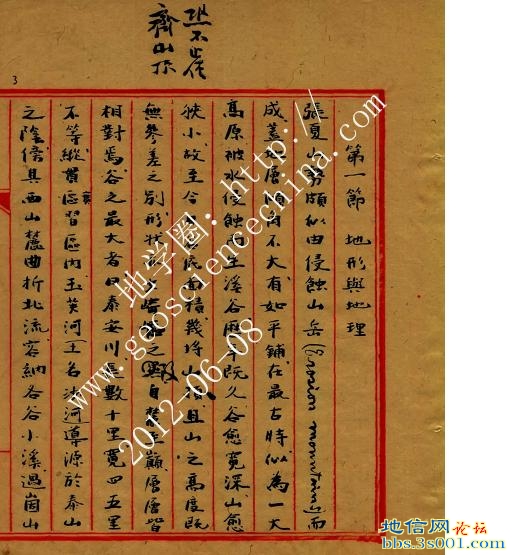 恐不僅
齊山於
3
第一節 地形與地理
張夏山勢頗似由侵蝕山岳(Erosion mountain)而
成蓋地層傾角不大有如平鋪在最古時似為一大
高原被水侵蝕而生溪谷歷年既久谷愈寬深山愈
狹小故至今 面積幾將山 且山之高度既
無參差之別形狀 之 自麓至巔層層皆
相對焉谷之最大者曰泰安川長數十里寬四五里
不等縱貫實習區內玉英河(土名沙河)導源於泰山
之陰傍其西山麓曲折北流容納各谷小溪過崮山
地学圈:
www.geosciencechina.com
2012-06-08
地信网论坛
bbs.3s001.com